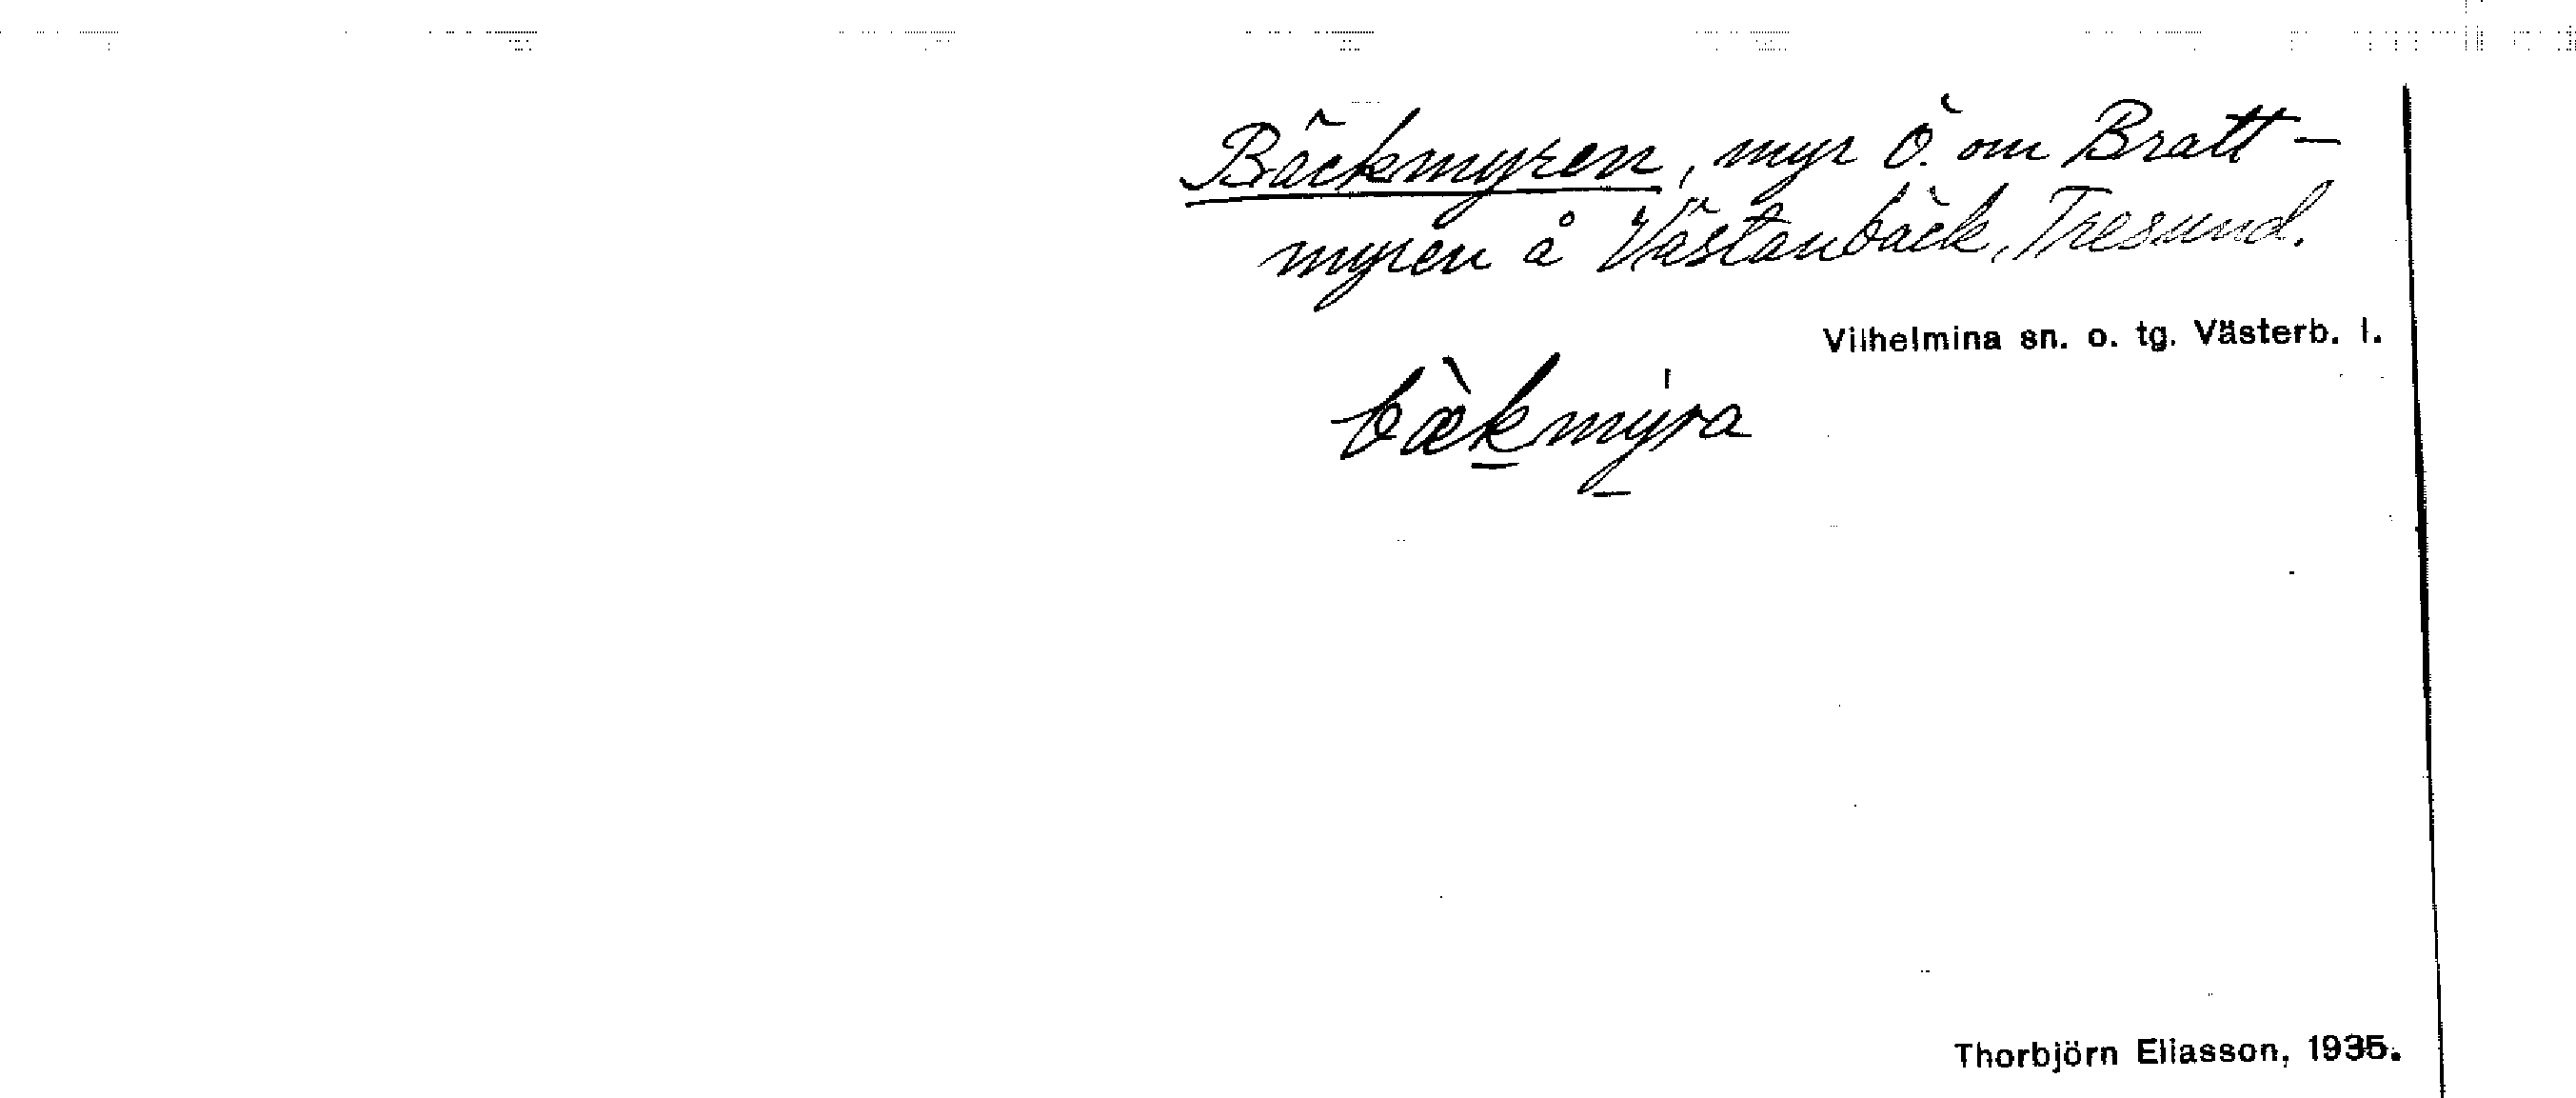 Bäckmyren, myr Ö. om Bratt-
myren å Västanbäck, Tresund.
Vilhelmina sn. o. tg. Västerb. l.
bæ̀kmy̱ra
Thorbjörn Eliasson, 1935.